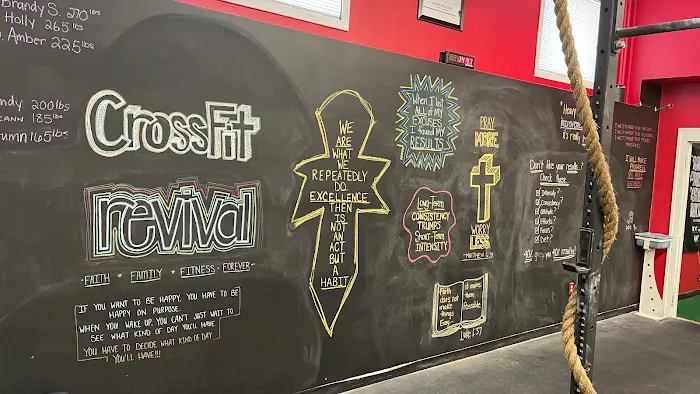 Brandy S. 270 lbs
Holly 265 lbs
Amber 225 lbs
200lbs
185lbs
165lbs
CrossFit
revival
FAITH * FAMILY * FITNESS FOREVER
IF YOU WANT TO BE HAPPY, YOU HAVE TO BE
HAPPY ON PURPOSE.
WHEN YOU WAKE UP, YOU CAN'T JUST WAIT TO
SEE WHAT KIND OF DAY YOU'LL HAVE
YOU HAVE TO DECIDE WHAT KIND OF DAY
YOU'LL HAVE!!!
WE
ARE
WHAT
WE
REPEATEDLY
DO.
EXCELLENCE
THEN
IS
NOT
AN
ACT
BUT
A
HABIT
When I lost
ALL of my
EXCUSES
I found my
RESULTS
Long-Term
CONSISTENCY
TRUMPS
Short-Term
INTENSITY
PRAY
MORE
WORRY
LESS
Faith
does not
make
things
Easy
it makes
them
Possible
Luke 1:37
Don't like your results?
Check these:
Consistency?
Attitude?
Efforts?
Focus?
Diet?
I WILL
MAKE
PROGRESS
NOT
EXCUSES